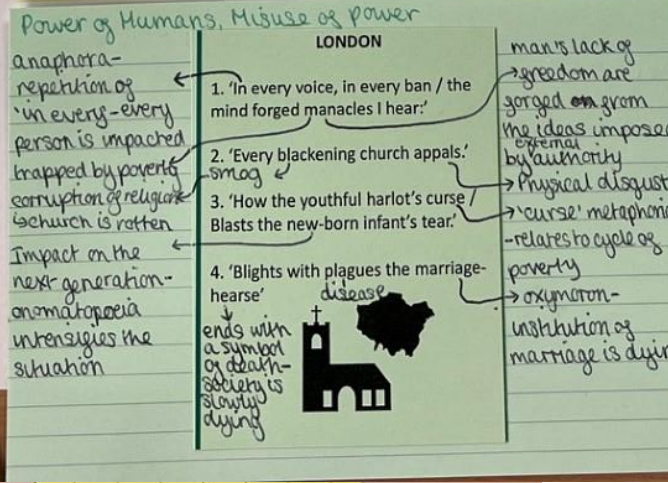 Power of Humans, Misuse of power
anaphora-
repetition of
'in every-every
person is impacted
trapped by poverty
corruption of religion
church is rotten
Impact on the
next generation-
onomatopoeia
intensifies the
situation
LONDON
1. 'In every voice, in every ban / the
mind forged manacles I hear:'
2. 'Every blackening church appals.'
smog
3. 'How the youthful harlot's curse /
Blasts the new-born infant's tear.'
4. 'Blights with plagues the marriage-
hearse'
disease
ends with
a symbol
of death-
society is
slowly
dying
man's lack of
freedom are
forged from
the ideas impose
external
by authority
Physical disgust
'curse' metaphoric
-relates to cycle of
poverty
oxymoron-
institution of
marriage is dyin